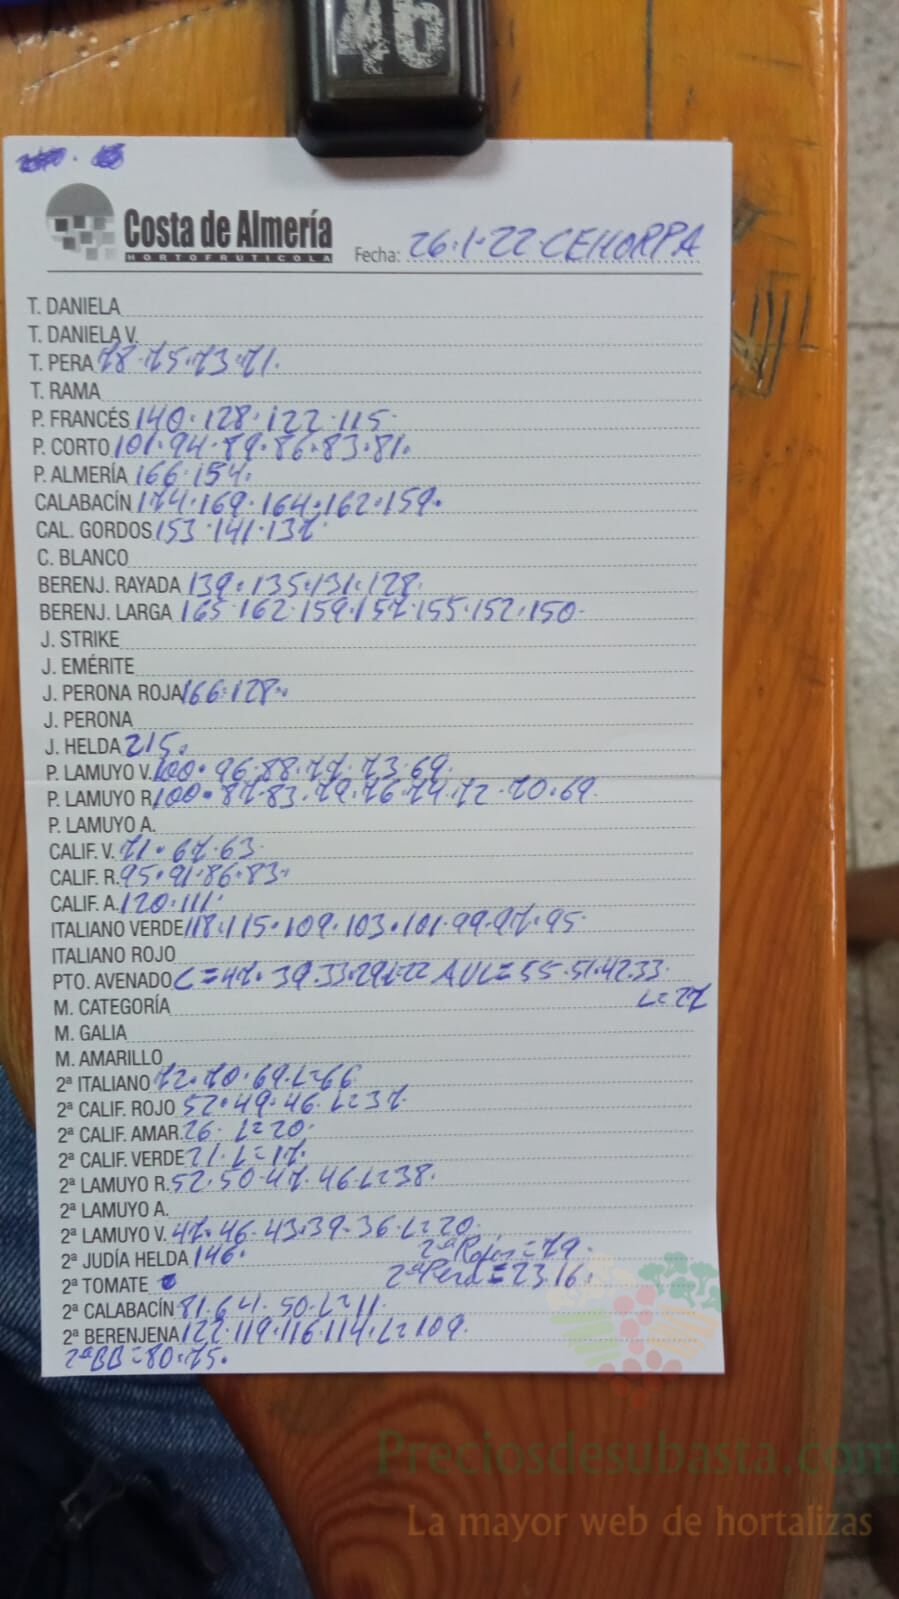 46
Costa de Almería
HORTOFRUTICOLA
Fecha: 26.1.22 CEHORPA
T. DANIELA
T. DANIELA V.
T. PERA 78.75.73.71.
T. RAMA
P. FRANCÉS 140.128.122.115.
P. CORTO 101.94.89.86.83.81.
P. ALMERÍA 166.154.
CALABACÍN 174.169.164.162.159.
CAL. GORDOS 153.141.137
C. BLANCO
BERENJ. RAYADA 139.135.131.128.
BERENJ. LARGA 165.162.159.157.155.152.150.
J. STRIKE
J. EMÉRITE
J. PERONA ROJA 166.128.
J. PERONA
J. HELDA 215.
P. LAMUYO V. 100.96.88.77.73.69.
P. LAMUYO R. 100.87.83.79.76.74.72.70.69.
P. LAMUYO A.
CALIF. V. 71.67.63
CALIF. R. 95.91.86.83.
CALIF. A. 120.111.
ITALIANO VERDE 118.115.109.103.101.99.97.95
ITALIANO ROJO
PTO. AVENADO C=47.39.33.29.L=22 AVL=55.51.42.33.
L=27
M. CATEGORÍA
M. GALIA
M. AMARILLO
2ª ITALIANO 72.70.69.L=66
2ª CALIF. ROJO 52.49.46.L=37
2ª CALIF. AMAR. 26. L=20.
2ª CALIF. VERDE 21.L=17.
2ª LAMUYO R. 52.50.47.46.L=38.
2ª LAMUYO A.
2ª LAMUYO V. 47.46.43.39.36.L=20.
2ª JUDÍA HELDA 146. 2ª Roja=79.
2ª TOMATE 2ª Pera=23.16.
2ª CALABACÍN 81.64.50.L=11.
2ª BERENJENA 122.119.116.114.L=109.
2ª BB=80.75.
Preciosdesubasta.com
La mayor web de hortalizas